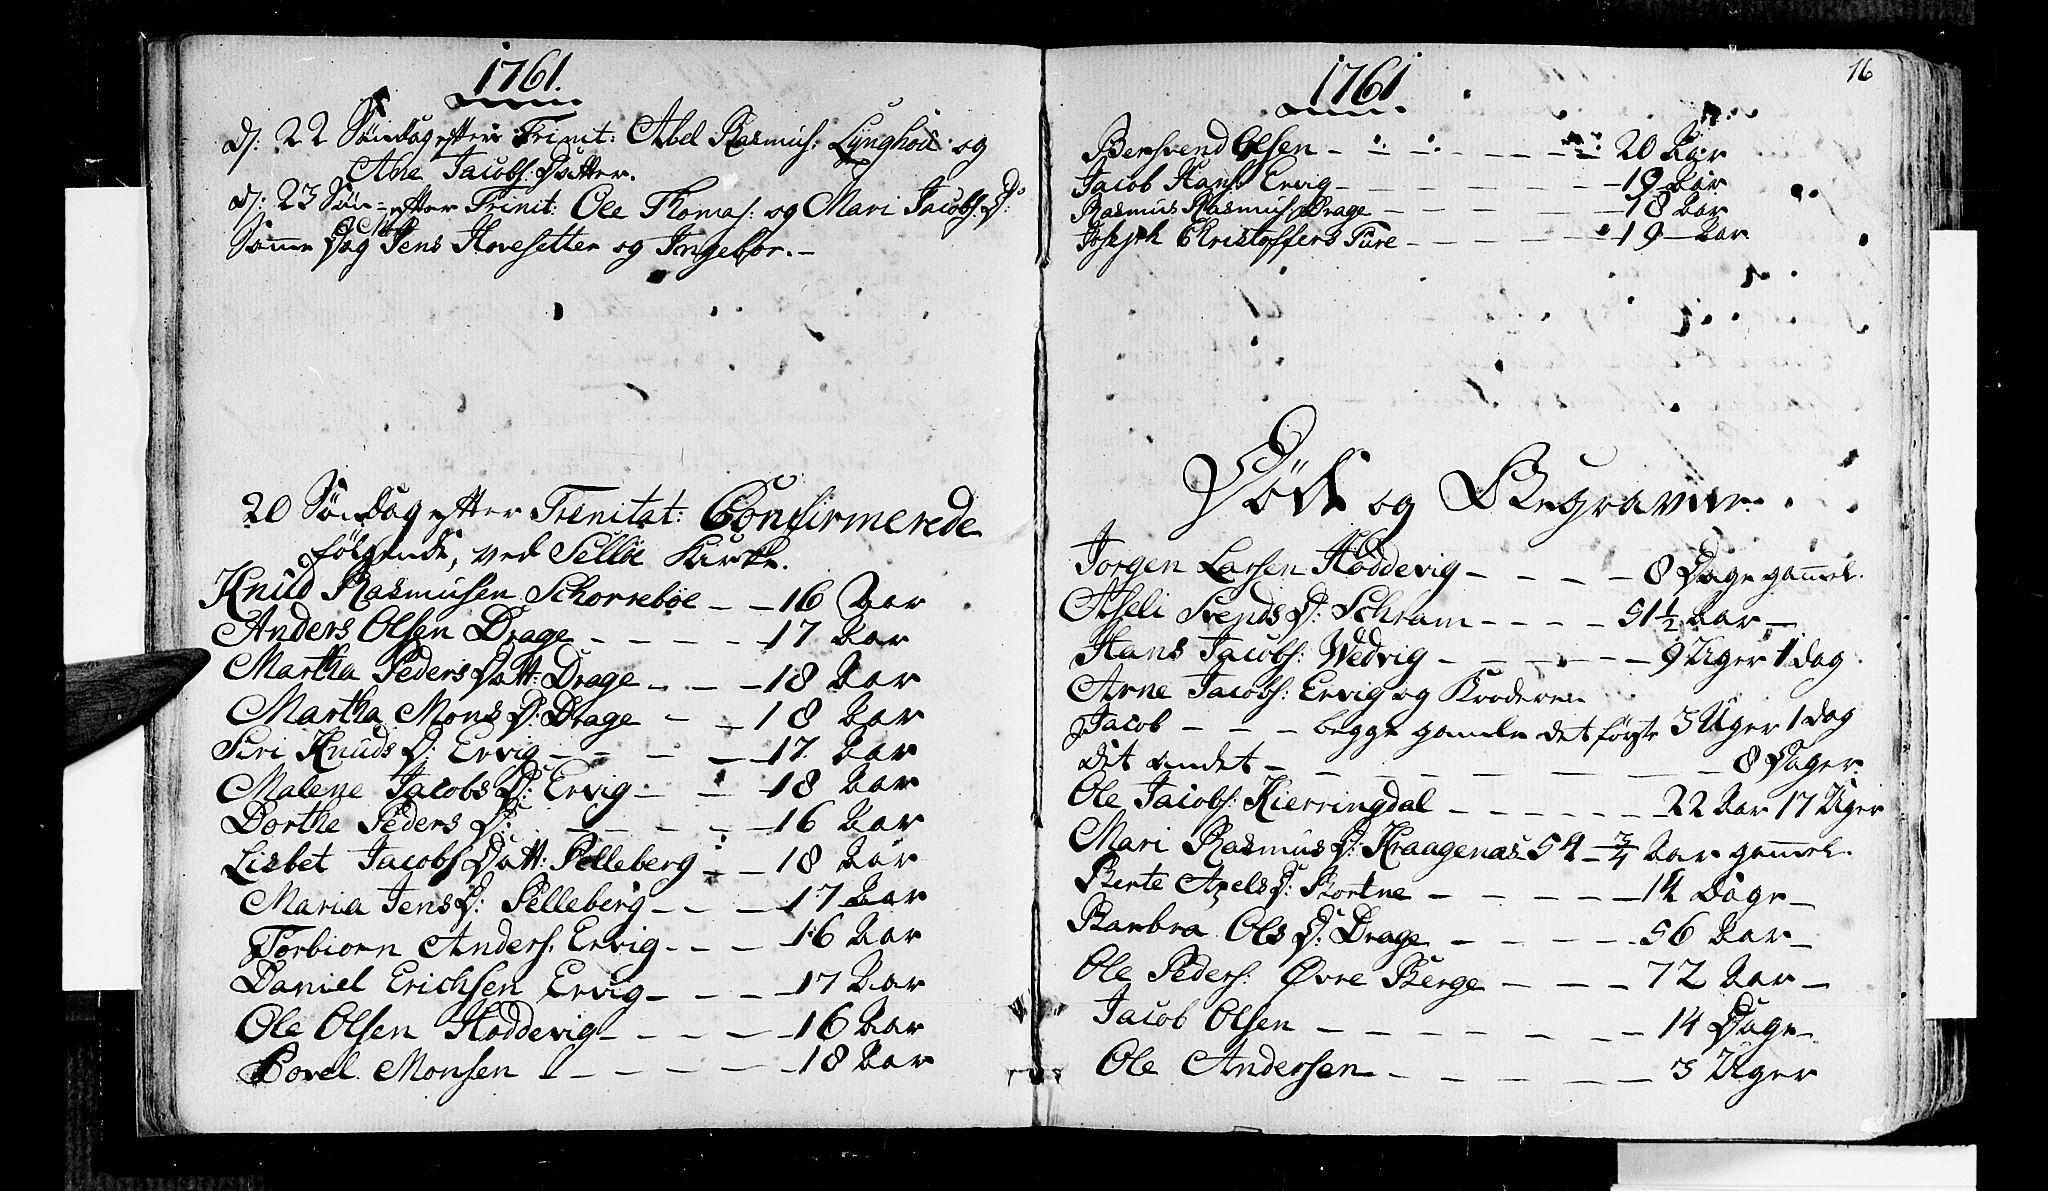 1761.
d: 22 Søndag efter Trinit: Abel Rasmus: Lÿnghoü og
Ane Jacobs: Datter.
d: 23 Søn= efter Trinit: Ole Thomas: og Mari Jacobs: D:
Samme Dag Jens Hovesetter og Ingebor. –
20 Søndag efter Trinitat: Confirmerede
følgende, ved Selløe Kirke.
Knud Rasmusen Schorrebøe – – 16 Aar
Anders Olsen Drage – – – – 17 Aar
Martha Peders Datt: Drage – – – 18 Aar
Martha Mons D: Drage – – 18 Aar
Siri Knuds D: Ervig – – – – 17 Aar
Malene Jacobs D: Ervig – – – 18 Aar
Dorthe Peders D: – – – – 16 Aar
Lisbet Jacobs Datt: Pelleberg – – 18 Aar
Maria Jens D: Pelleberg – – – 17 Aar
Torbiorn Anders: Ervig – – – 16 Aar
Daniel Erichsen Ervig – – – – 17 Aar
Ole Olsen Hoddevig – – – – 16 Aar
Povel Monsen – – – – – 18 Aar
1761
16
Bersvend Olsen – – – – – – 20 Aar
Jacob Hans: Ervig – – – – – – 19 Aar
Rasmus Rasmus: Drage – – – – – 18 Aar
Joseph Christoffers Ture – – – – – 19 Aar
Død og Begraven
Jorgen Larsen Hoddevig – – – – 8 Dage gammel.
Aseli Svends D: Schram – – – – 51 1/2 Aar –
Hans Jacobs: Wedvig – – – – – 9 Uger 1 dag
Arne Jacobs: Ervig og
Jacob – – – begge gamle det første 3 Uger 1 dag
det andet – – – – – – – 8 Dager.
Ole Jacobs: Kierringdal – – – – – – 22 Aar 17 Uger
Mari Rasmus D: Kraagenæs 54 – 3/4 Aar gammel.
Berte Axels D: Bortne – – – – – 14 Dage –
Barbra Ols D: Drage – – – – – 56 Aar –
Ole Peders: Øvre Berge – – – – 72 Aar –
Jacob Olsen – – – – – – – 14 Dage –
Ole Andersen – – – – – – 3 Uger